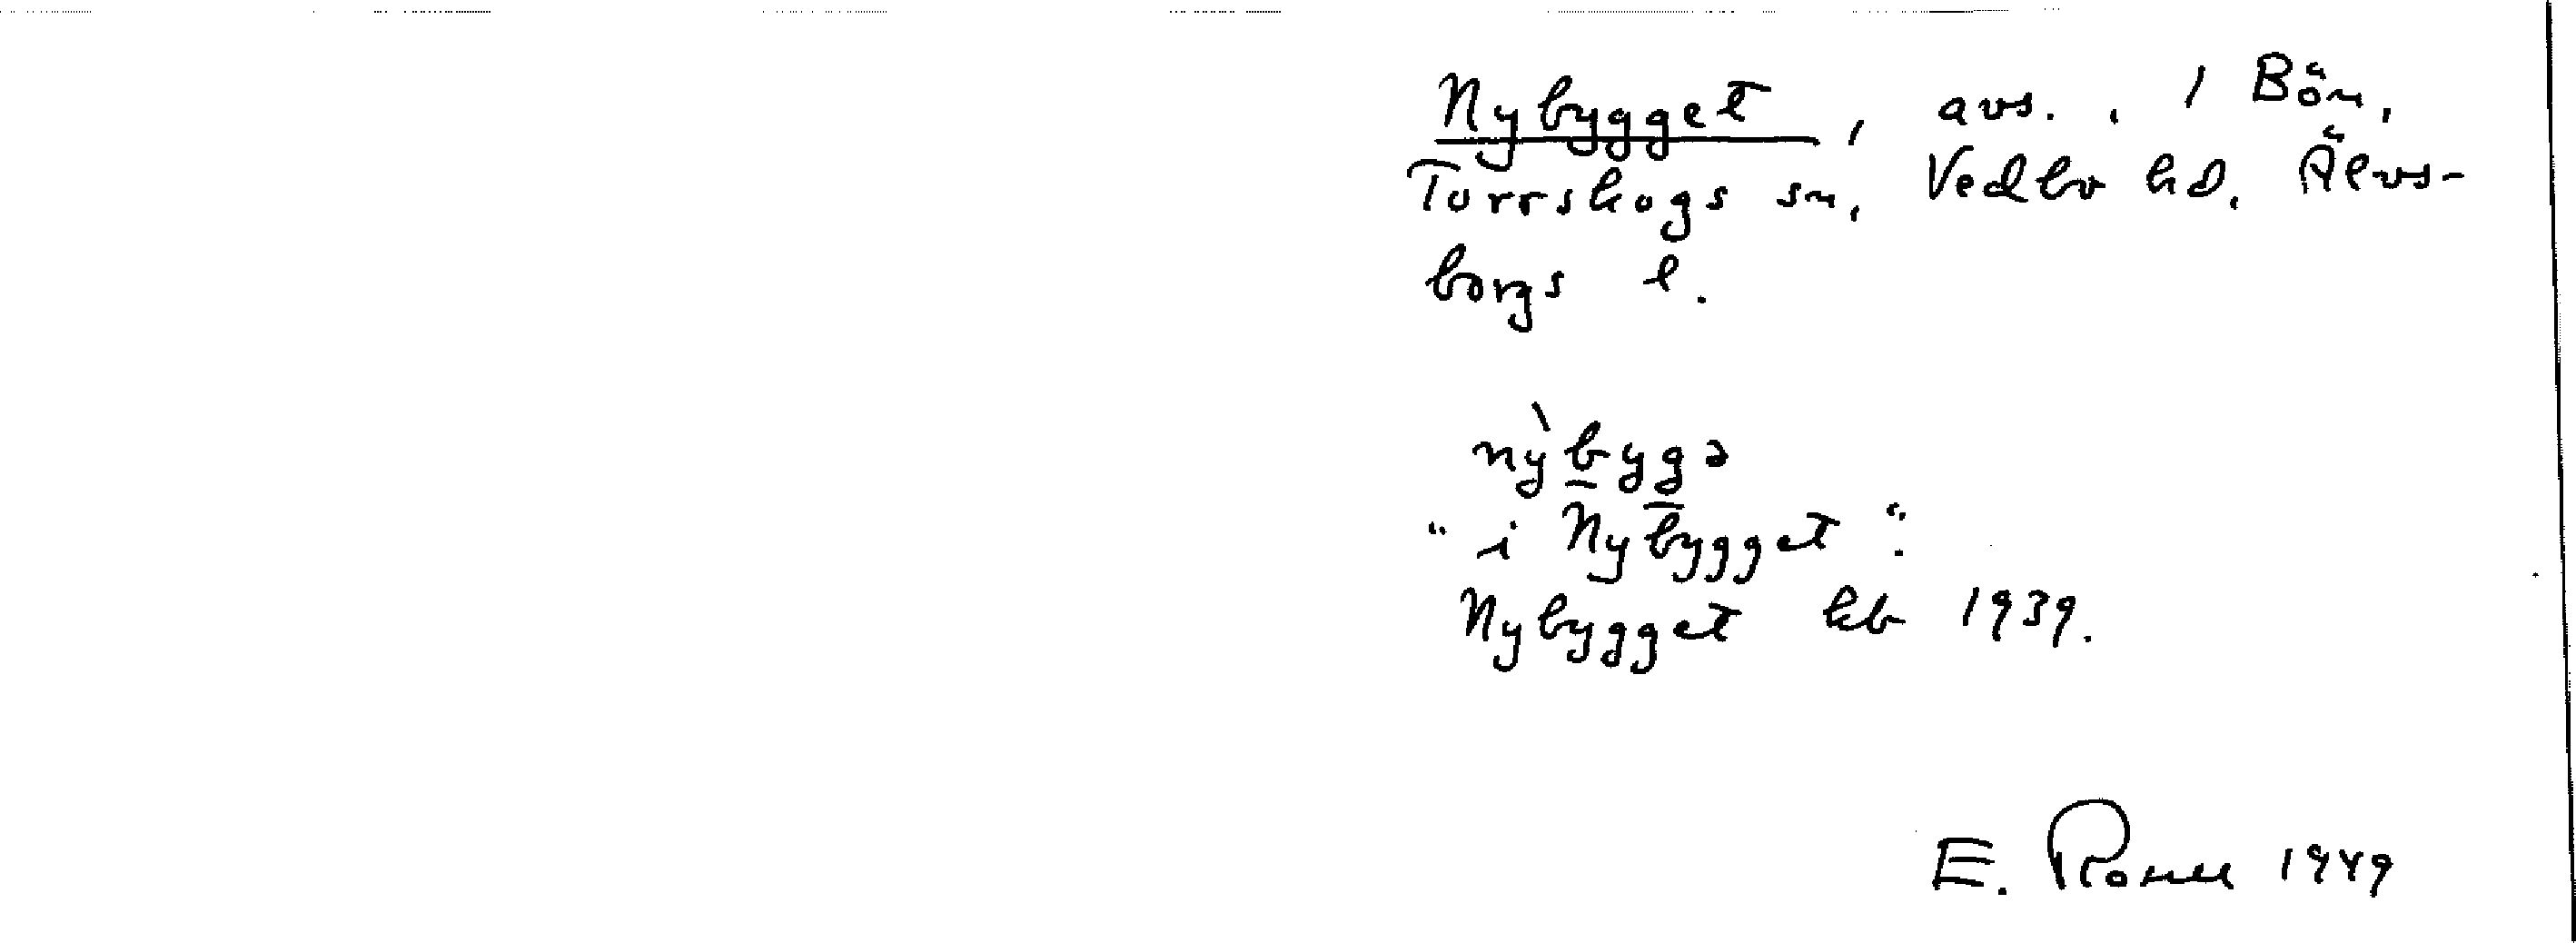 Nybygget, avs., 1 Bön,
Torrskogs sn, Vedbo hd. Älvs-
borgs l.
nỳbygə
"i Nybygget".
Nybygget kb 1939.
E. 1949